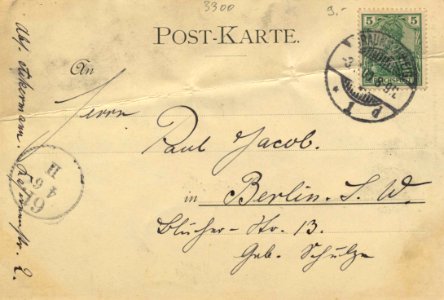 3300
9.-
POST-KARTE.
5 5
An
Herrn
Paul Jacob.
in Berlin. S. W.
Blücher-Str. 13.
Geb. Schulze
Abs. Ackermann.